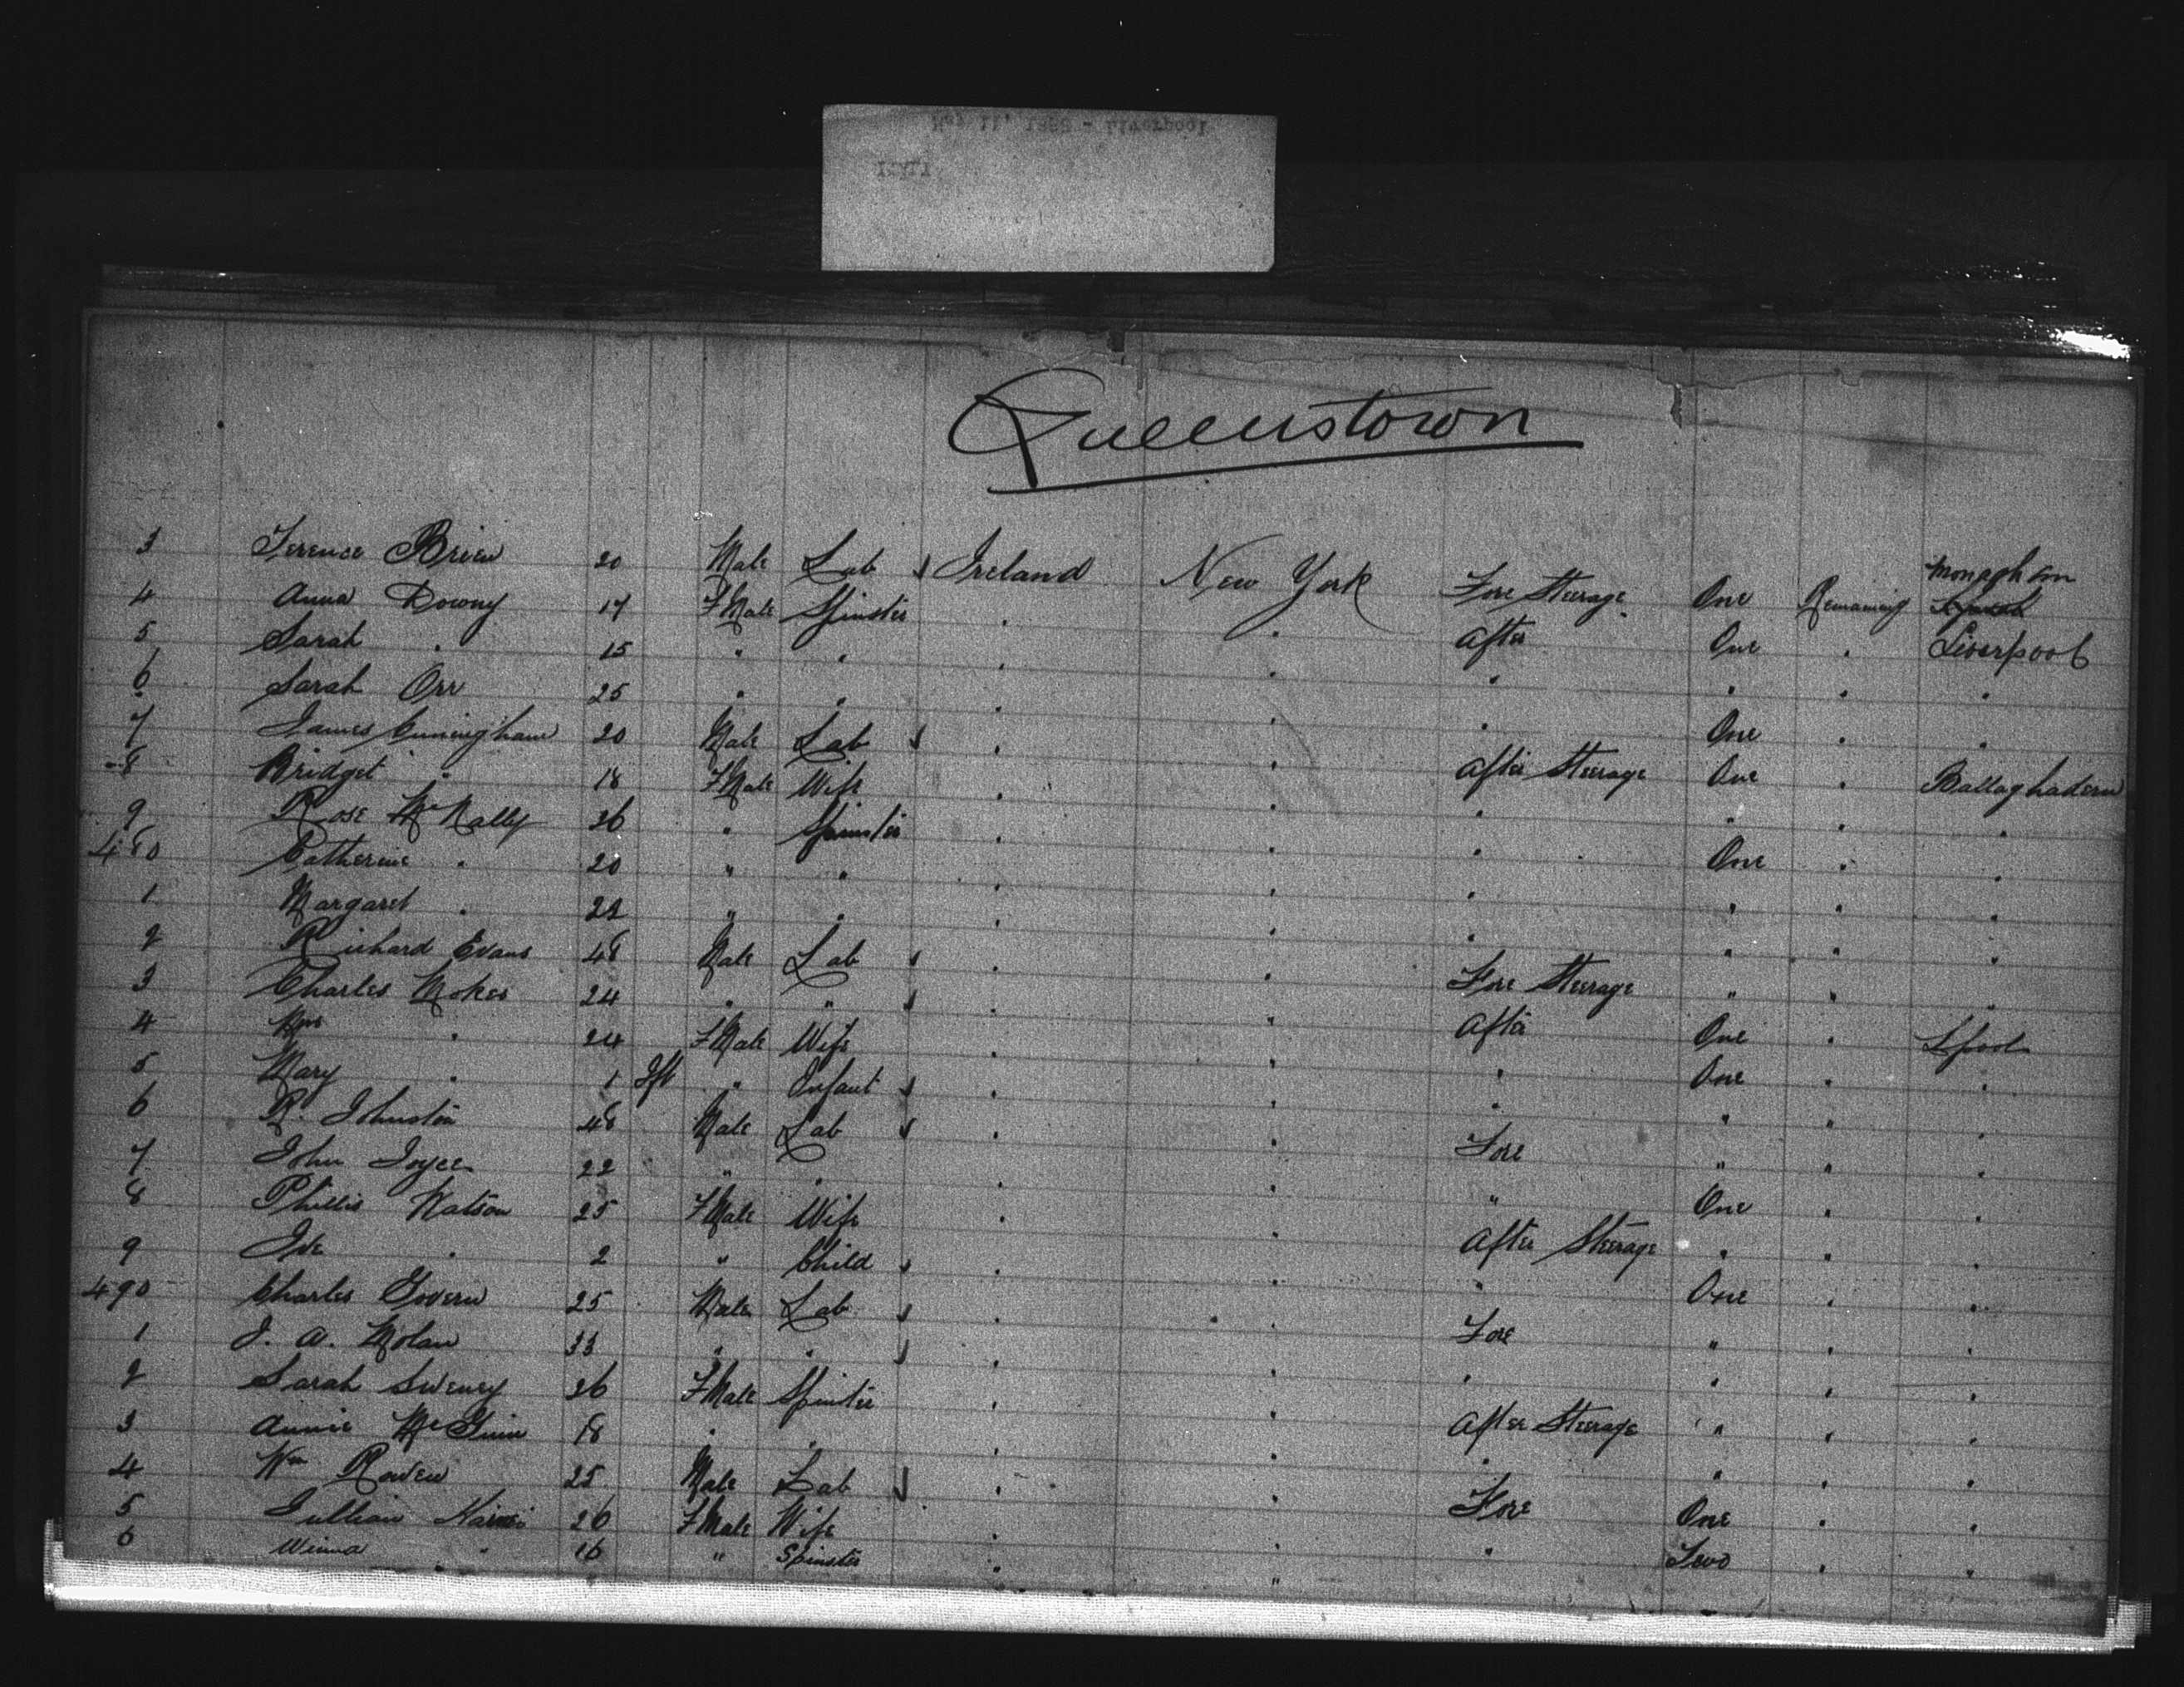 Queenstown
3 Terence Brien 20 Male Lab Ireland New York Fore Steerage One Remaining Monaghan
4 Anna Downy 17 FMale Spinster " " After One " Liverpool
5 Sarah " 15 " " " " " " " "
6 Sarah Orr 25 " " " " " One " "
7 James Cuningham 20 Male Lab " " After Steerage One " Ballaghadern
8 Bridget " 18 FMale Wife " " " " " "
9 Rose McNally 26 " Spinster " " " One " "
480 Catherine " 20 " " " " " " " "
1 Margaret " 22 " " " " " " " "
2 Richard Evans 48 Male Lab " " Fore Steerage " " "
3 Charles Mokes 24 " " " " After One " Lpool
4 Mrs " 24 FMale Wife " " " One " "
5 Mary " 1 Ift " Infant " " " " " "
6 R. Johnston 48 Male Lab " " Fore " " "
7 John Joyce 22 " " " " " One " "
8 Phillis Watson 25 FMale Wife " " After Steerage " " "
9 " 2 " Child " " " One " "
490 Charles Govern 25 Male Lab " " Fore " " "
1 J. A. Nolan 33 " " " " " " " "
2 Sarah Sweney 26 FMale Spinster " " After Steerage " " "
3 Annie McGuin 18 " " " " " " " "
4 Wm Rowen 25 Male Lab " " Fore One " "
5 26 FMale Wife " " " Two " "
6 Winna " 16 " Spinster " "